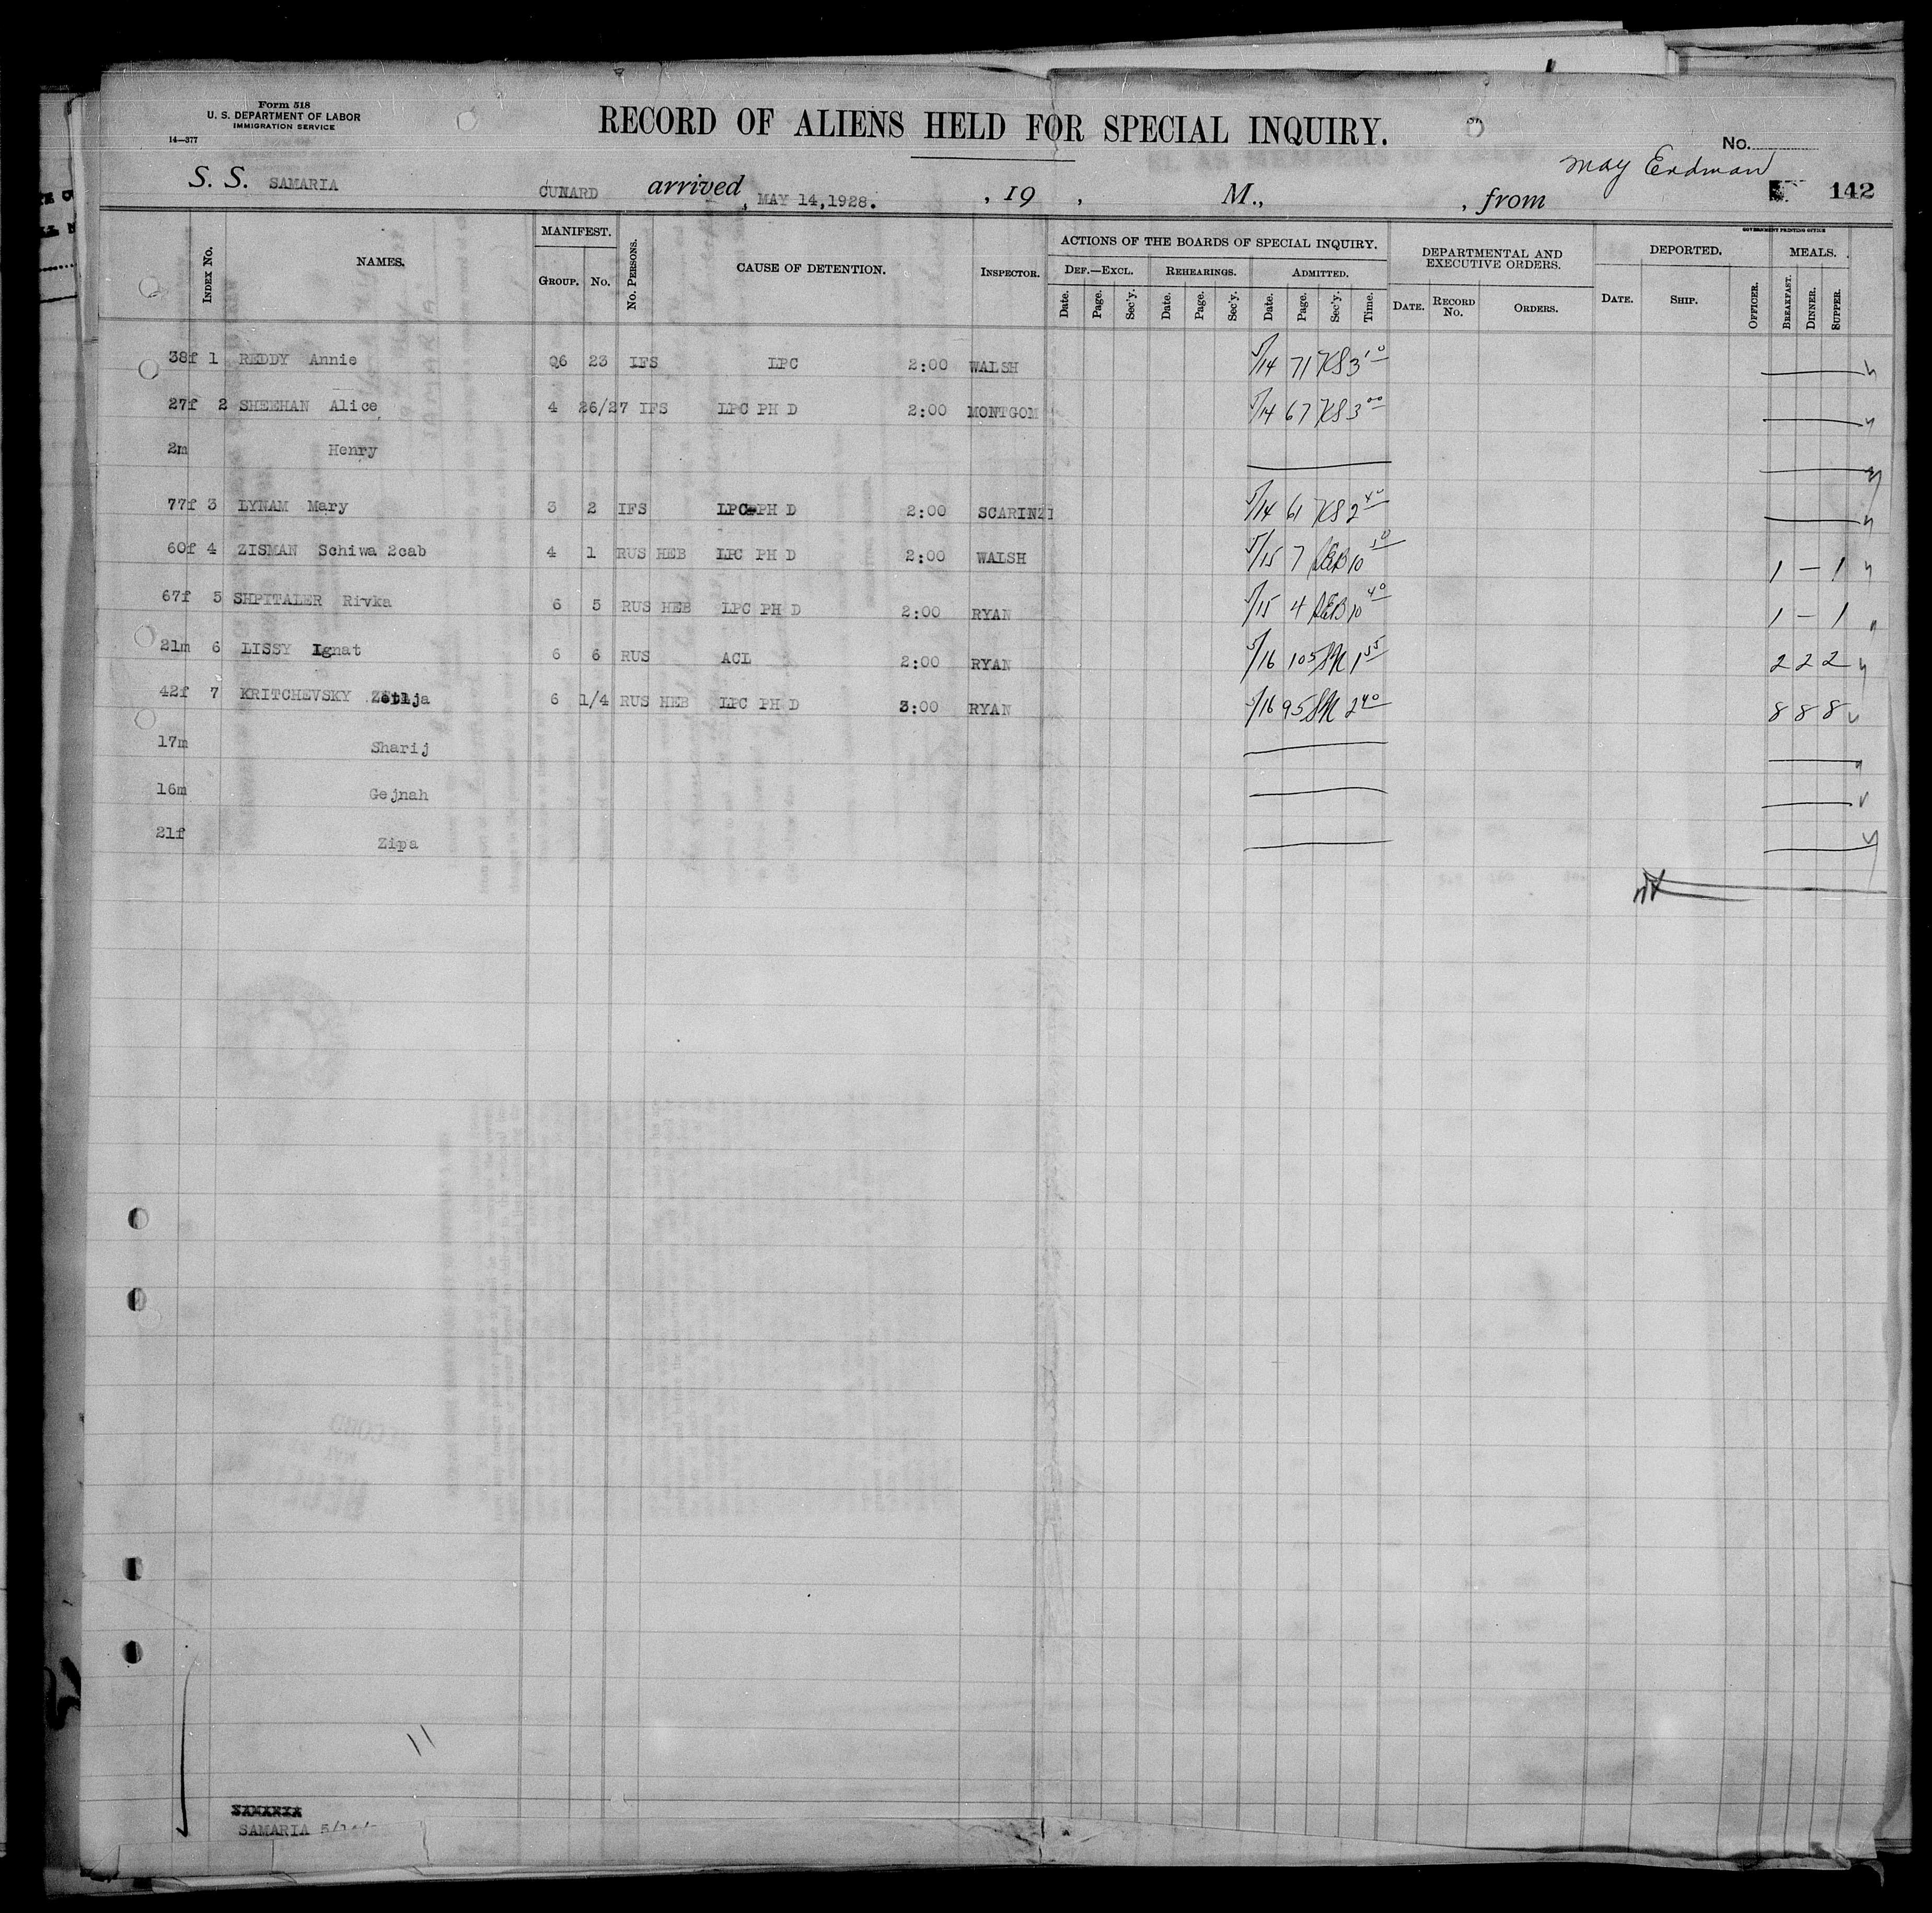 Form 518
U. S. DEPARTMENT OF LABOR
IMMIGRATION SERVICE
14—377
RECORD OF ALIENS HELD FOR SPECIAL INQUIRY.
No.
May Erdman
S. S. SAMARIA CUNARD arrived, MAY 14,1928. , 19 , M., , from 142
GOVERNMENT PRINTING OFFICE
INDEX NO. NAMES. MANIFEST. NO. PERSONS. CAUSE OF DETENTION. INSPECTOR. ACTIONS OF THE BOARDS OF SPECIAL INQUIRY. DEPARTMENTAL AND EXECUTIVE ORDERS. DEPORTED. MEALS.
GROUP. NO. DEF.—EXCL. REHEARINGS. ADMITTED.
Date. Page. Sec'y. Date. Page. Sec'y. Date. Page. Sec'y. Time. DATE. RECORD NO. ORDERS. DATE. SHIP. OFFICER. BREAKFAST. DINNER. SUPPER.
38f 1 REDDY Annie Q6 23 IFS LPC 2:00 WALSH 5/14 71 KS 3 10
27f 2 SHEEHAN Alice 4 26/27 IFS LPC PH D 2:00 MONTGOM 5/14 67 KS 3 00
2m Henry
77f 3 LYNAM Mary 3 2 IFS LPC-PH D 2:00 SCARINZI 5/14 61 KS 2 40
60f 4 ZISMAN Schiwa 2cab 4 1 RUS HEB LPC PH D 2:00 WALSH 5/15 7 10 50 1 — 1
67f 5 SHPITALER Rivka 6 5 RUS HEB LPC PH D 2:00 RYAN 5/15 4 10 40 1 — 1
21m 6 LISSY Ignat 6 6 RUS ACL 2:00 RYAN 5/16 105 SM 1 55 2 2 2
42f 7 KRITCHEVSKY Zetlja 6 1/4 RUS HEB LPC PH D 3:00 RYAN 5/16 95 SM 2 40 8 8 8
17m Sharij
16m Gejnah
21f Zipa
11
SAMARIA
SAMARIA 5/14/